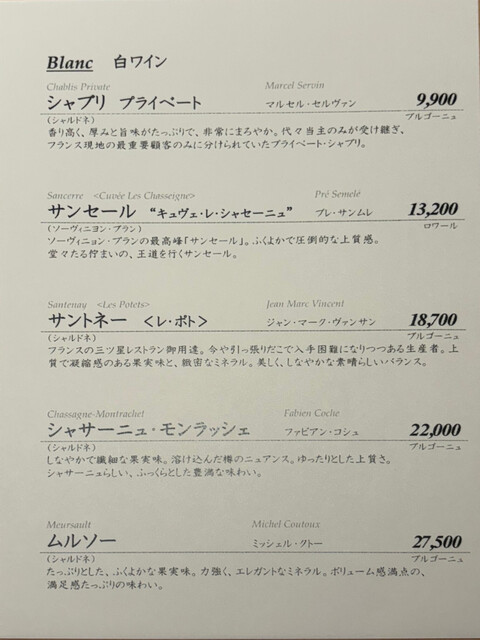 Blanc 白ワイン
Chablis Private Marcel Servin
シャブリ プライベート マルセル・セルヴァン 9,900
(シャルドネ) ブルゴーニュ
香り高く、厚みと旨味がたっぷりで、非常にまろやか。代々当主のみが受け継ぎ、
フランス現地の最重要顧客のみに分けられていたプライベート・シャブリ。
Sancerre <Cuvée Les Chasseigne> Pré Semelé
サンセール “キュヴェ・レ・シャセーニュ” プレ・サンムレ 13,200
(ソーヴィニヨン・ブラン) ロワール
ソーヴィニョン・ブランの最高峰「サンセール」。ふくよかで圧倒的な上質感。
堂々たる佇まいの、王道を行くサンセール。
Santenay <Les Potets> Jean Marc Vincent
サントネー <レ・ポト> ジャン・マーク・ヴァンサン 18,700
(シャルドネ) ブルゴーニュ
フランスの三ツ星レストラン御用達。今や引っ張りだこで入手困難になりつつある生産者。上
質で凝縮感のある果実味と、緻密なミネラル。美しく、しなやかな素晴らしいバランス。
Chassagne-Montrachet Fabien Coche
シャサーニュ・モンラッシェ ファビアン・コシュ 22,000
(シャルドネ) ブルゴーニュ
しなやかで繊細な果実味。溶け込んだ樽のニュアンス。ゆったりとした上質さ。
シャサーニュらしい、ふっくらとした豊満な味わい。
Meursault Michel Coutoux
ムルソー ミッシェル・クトー 27,500
(シャルドネ) ブルゴーニュ
たっぷりとした、ふくよかな果実味。力強く、エレガントなミネラル。ボリューム感満点の、
満足感たっぷりの味わい。